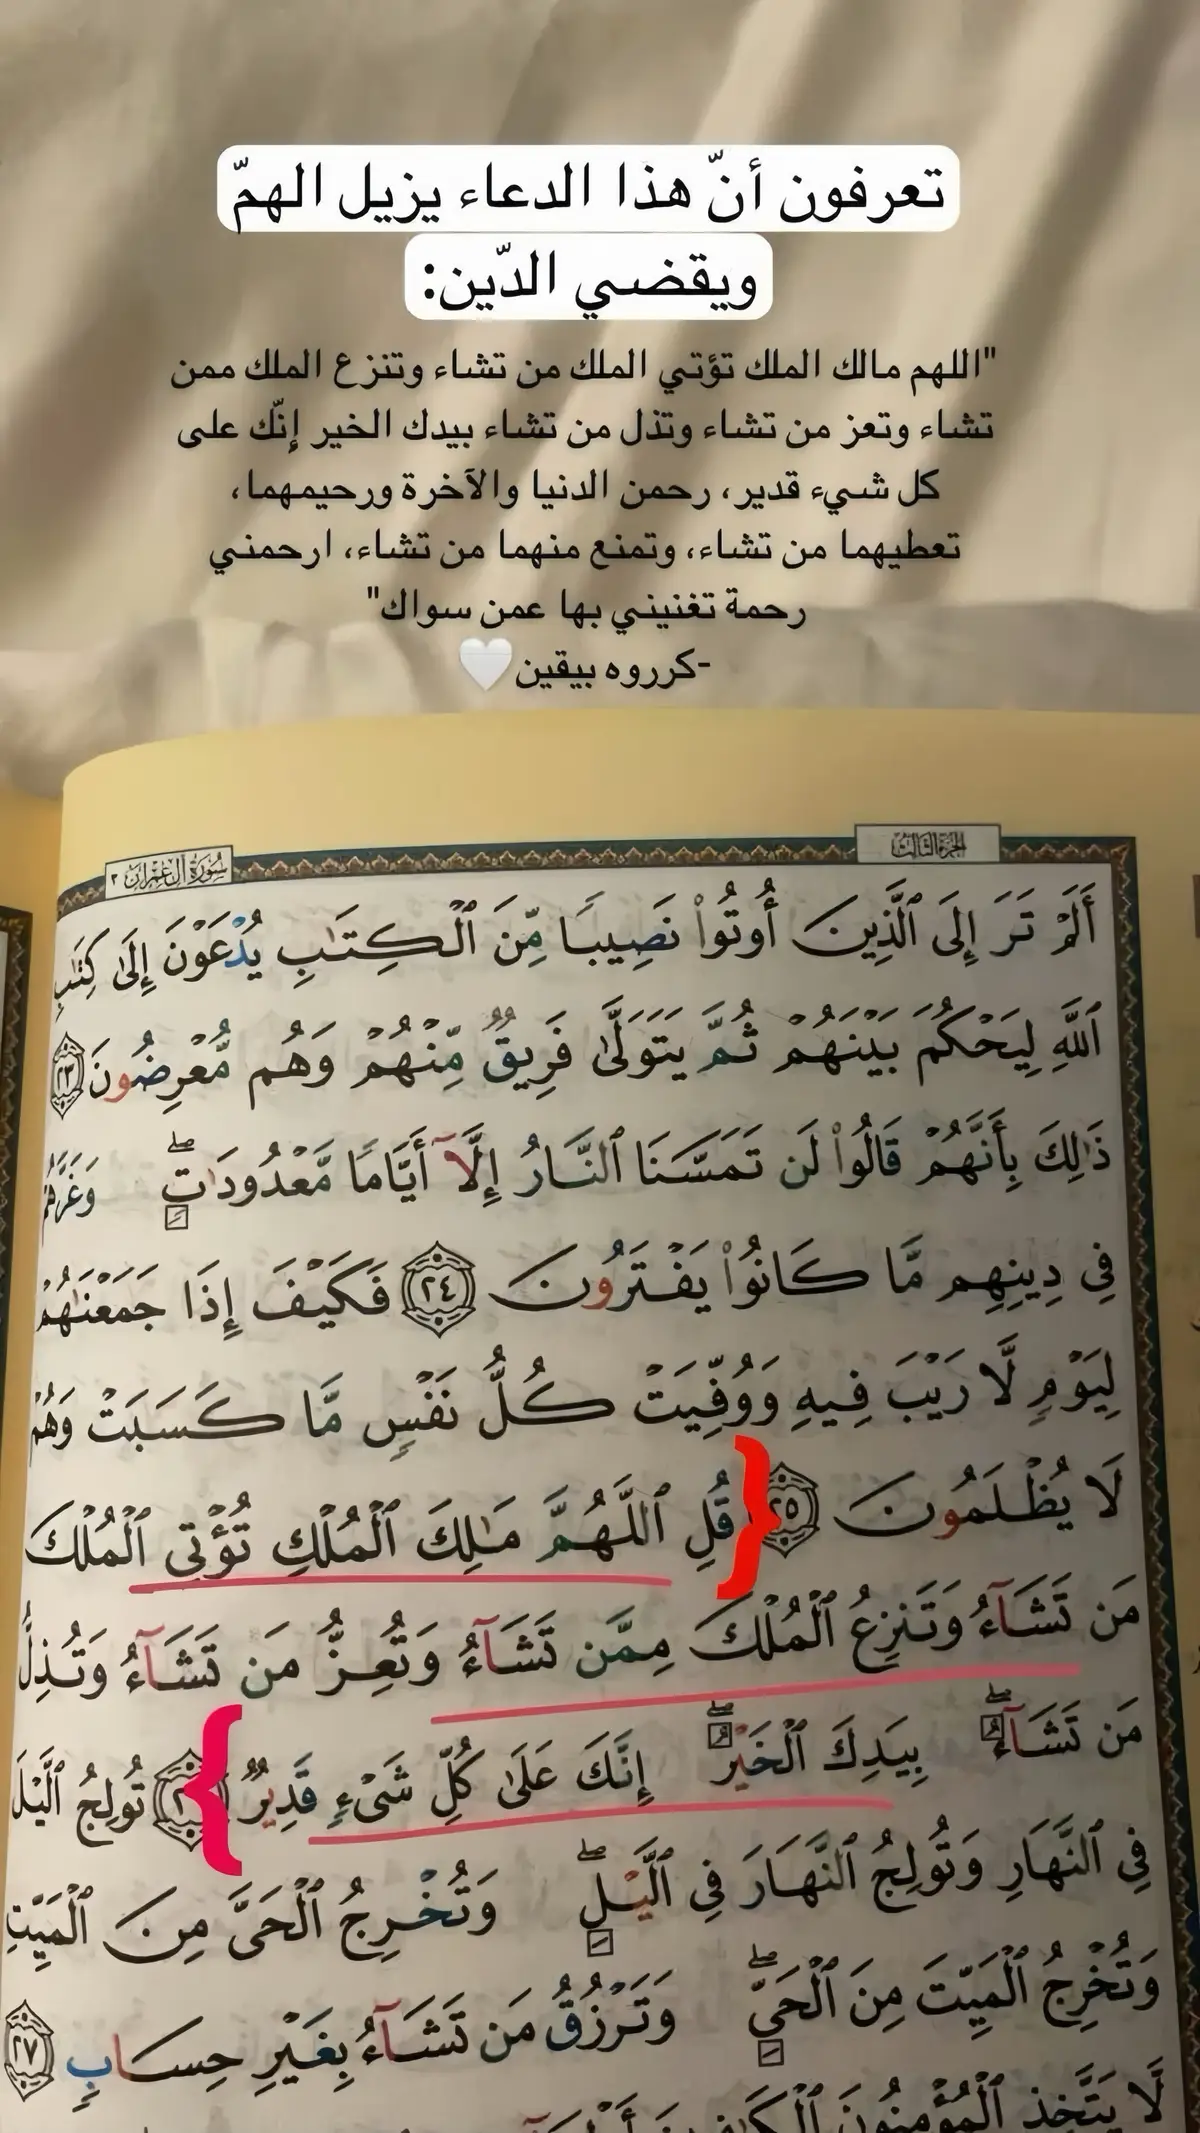 تعرفون أنّ هذا الدعاء يزيل الهمّ
ويقضي الدّين:
"اللهم مالك الملك تؤتي الملك من تشاء وتنزع الملك ممن
تشاء وتعز من تشاء وتذل من تشاء بيدك الخير إنّك على
كل شيء قدير، رحمن الدنيا والآخرة ورحيمهما،
تعطيهما من تشاء، وتمنع منهما من تشاء، ارحمني
رحمة تغنيني بها عمن سواك"
-كرروه بيقين🤍
الجزء الثالث
سورة آل عمران ٣
أَلَمْ تَرَ إِلَى ٱلَّذِينَ أُوتُوا۟ نَصِيبًا مِّنَ ٱلْكِتَٰبِ يُدْعَوْنَ إِلَىٰ كِتَٰبِ
ٱللَّهِ لِيَحْكُمَ بَيْنَهُمْ ثُمَّ يَتَوَلَّىٰ فَرِيقٌ مِّنْهُمْ وَهُم مُّعْرِضُونَ ٢٣
ذَٰلِكَ بِأَنَّهُمْ قَالُوا۟ لَن تَمَسَّنَا ٱلنَّارُ إِلَّآ أَيَّامًا مَّعْدُودَٰتٍۖ وَغَرَّهُمْ
فِى دِينِهِم مَّا كَانُوا۟ يَفْتَرُونَ ٢٤ فَكَيْفَ إِذَا جَمَعْنَٰهُمْ
لِيَوْمٍ لَّا رَيْبَ فِيهِ وَوُفِّيَتْ كُلُّ نَفْسٍ مَّا كَسَبَتْ وَهُمْ
لَا يُظْلَمُونَ ٢٥ قُلِ ٱللَّهُمَّ مَٰلِكَ ٱلْمُلْكِ تُؤْتِى ٱلْمُلْكَ
مَن تَشَآءُ وَتَنزِعُ ٱلْمُلْكَ مِمَّن تَشَآءُ وَتُعِزُّ مَن تَشَآءُ وَتُذِلُّ
مَن تَشَآءُۖ بِيَدِكَ ٱلْخَيْرُۖ إِنَّكَ عَلَىٰ كُلِّ شَىْءٍ قَدِيرٌ تُولِجُ ٱلَّيْلَ
فِى ٱلنَّهَارِ وَتُولِجُ ٱلنَّهَارَ فِى ٱلَّيْلِۖ وَتُخْرِجُ ٱلْحَىَّ مِنَ ٱلْمَيِّتِ
وَتُخْرِجُ ٱلْمَيِّتَ مِنَ ٱلْحَىِّۖ وَتَرْزُقُ مَن تَشَآءُ بِغَيْرِ حِسَابٍ ٢٧
لَّا يَتَّخِذِ ٱلْمُؤْمِنُونَ ٱلْكَٰفِرِينَ